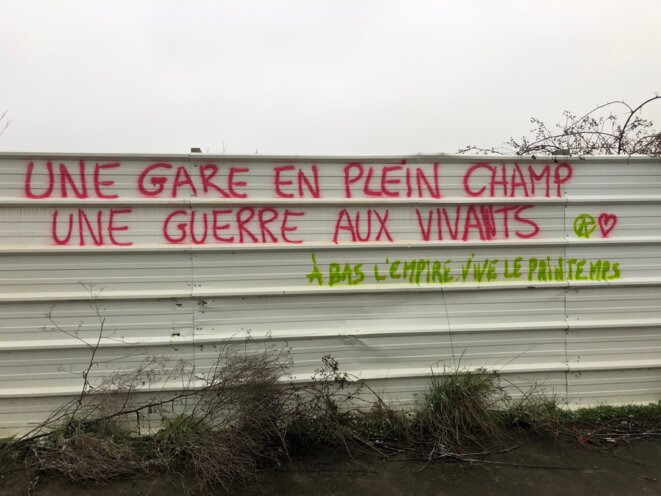 UNE GARE EN PLEIN CHAMP
UNE GUERRE AUX VIVANTS
À BAS L'EMPIRE. VIVE LE PRINTEMPS